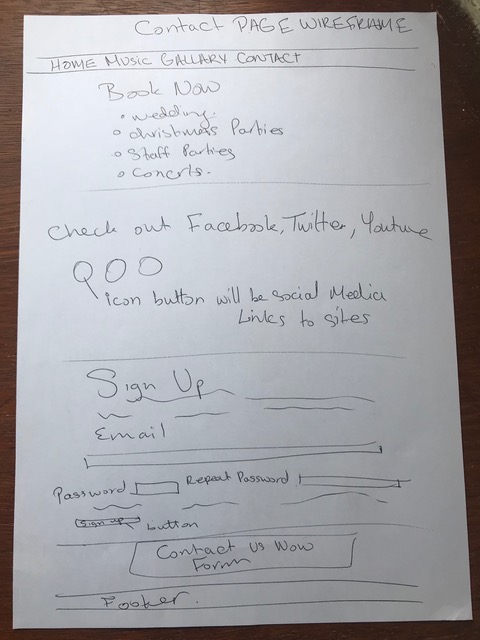 Contact PAGE WIREFRAME
HOME MUSIC GALLARY CONTACT
Book Now
wedding.
christmas Parties
Staff Parties
Concrts.
Check out Facebook, Twitter, Youtune
icon button will be social Media
Links to sites
Sign Up
Email
Password Repeat Password
Sign up button
Contact Us Now
Form
Footer.